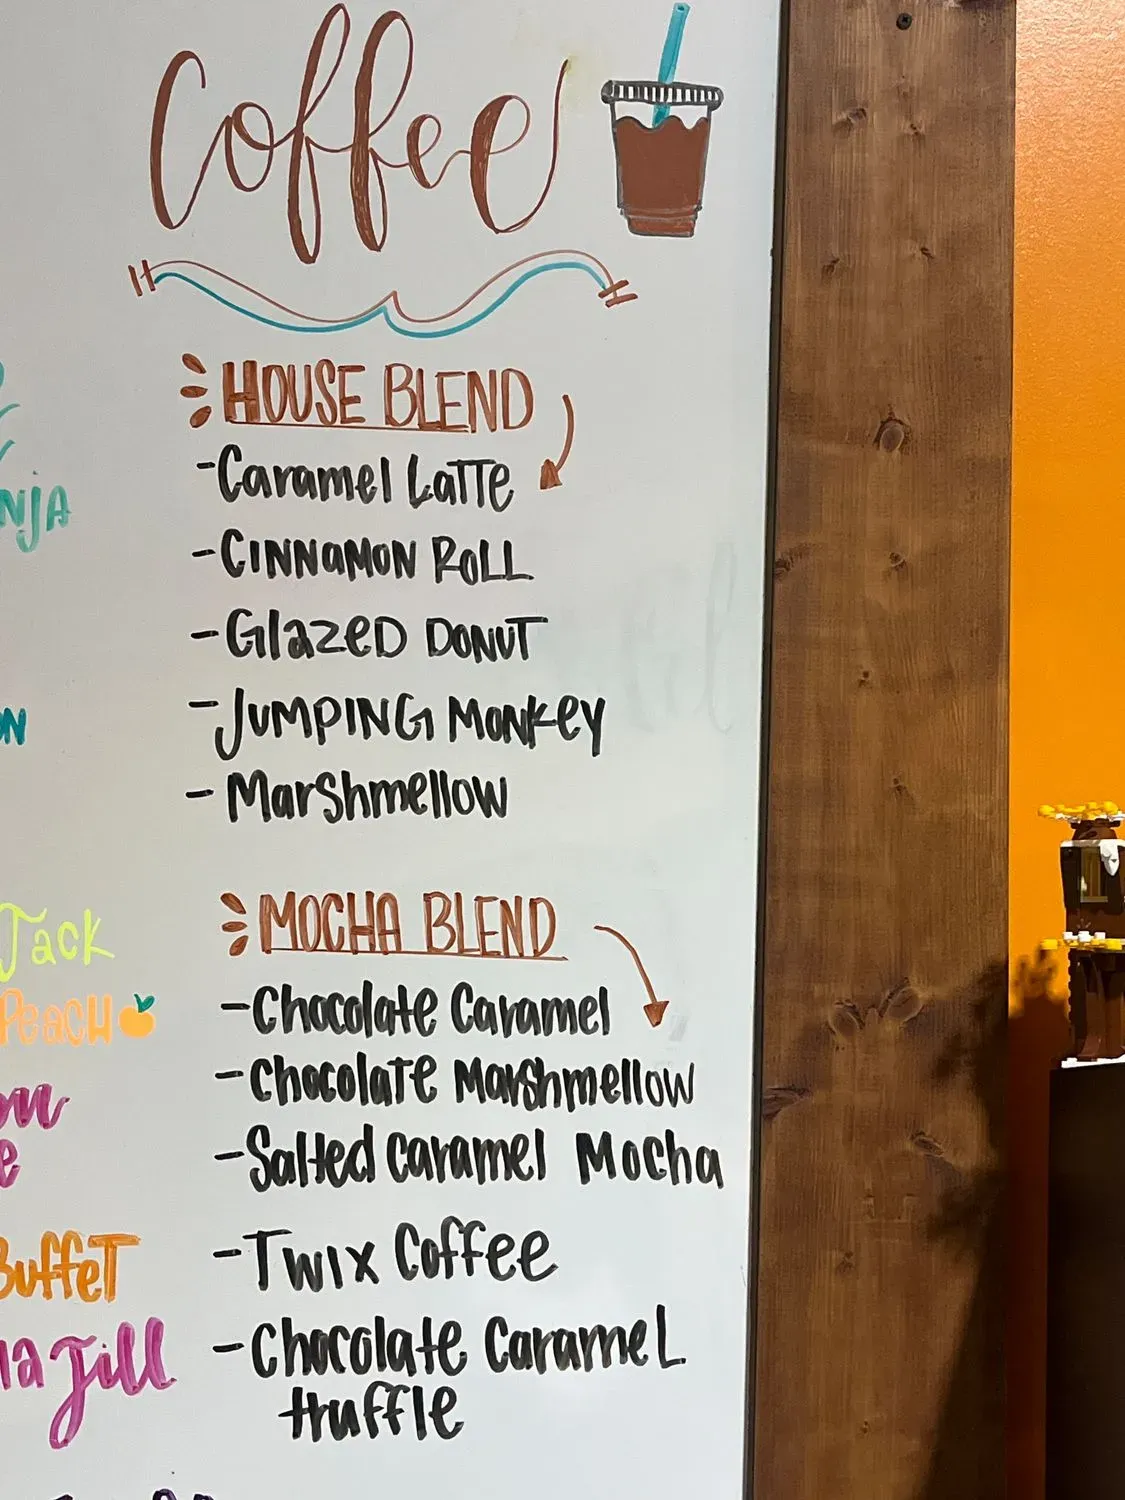 Coffee
HOUSE BLEND
-Caramel LaTTe
-CINNaMON ROLL
-GlazeD DONUT
-JUMPING MONKEY
-MarShmellow
MOCHA BLEND
-Chocolate Caramel
-ChocolaTe MarShmellow
-Salted Caramel Mocha
-TWIX Coffee
-Chocolate CarameL
truffle
Jack
PeacH
BuffeT
Jill